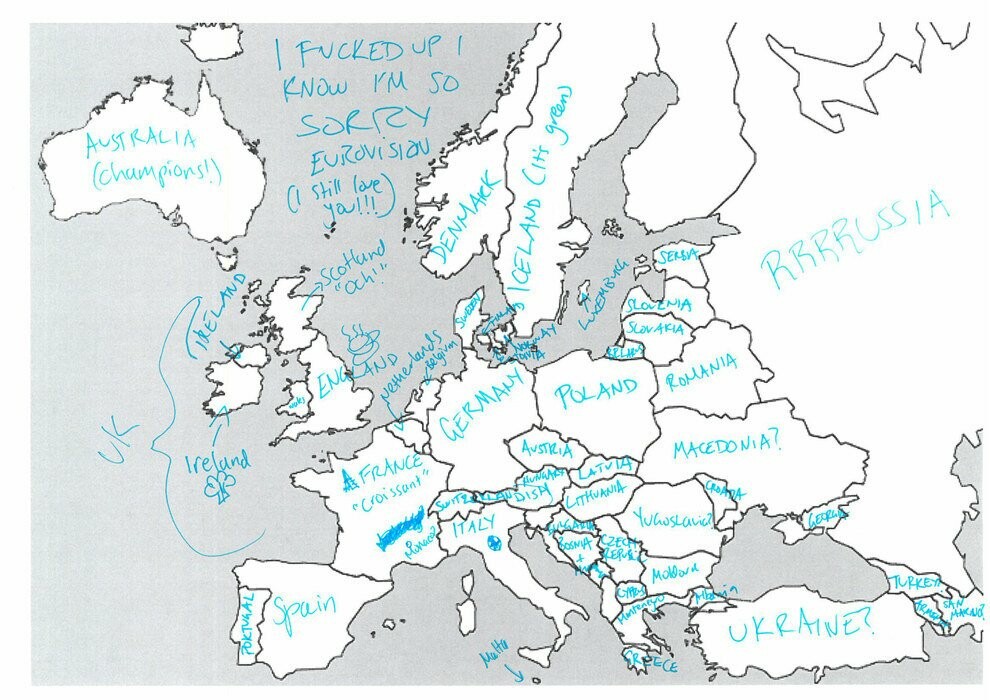 I FUCKED UP I
KNOW I'M SO
SORRY
EUROVISION
(I still love
you!!!)
AUSTRALIA
(champions!)
DENMARK
ICELAND (it's green)
RRRRUSSIA
SERBIA
LUXEMBURG
SLOVENIA
SLOVAKIA
SWEDEN
FINLAND
NORWAY
ESTONIA
BELARUS
ROMANIA
IRELAND
Scotland
"Och!"
ENGLAND
Wales
Netherlands
Belgium
UK
Ireland
GERMANY
POLAND
AUSTRIA
MACEDONIA?
FRANCE
"croissant"
Monaco?
SWITZERLAND
HUNGARY
LATVIA
LITHUANIA
CROATIA
ITALY
Yugoslavia?
GEORGIA
BULGARIA
BOSNIA
+
CZECH
REPUBLIC
Moldova
CYPRUS
Montenegro
Albania
TURKEY
ARMENIA
SAN
MARINO?
PORTUGAL
Spain
UKRAINE?
Malta
GREECE